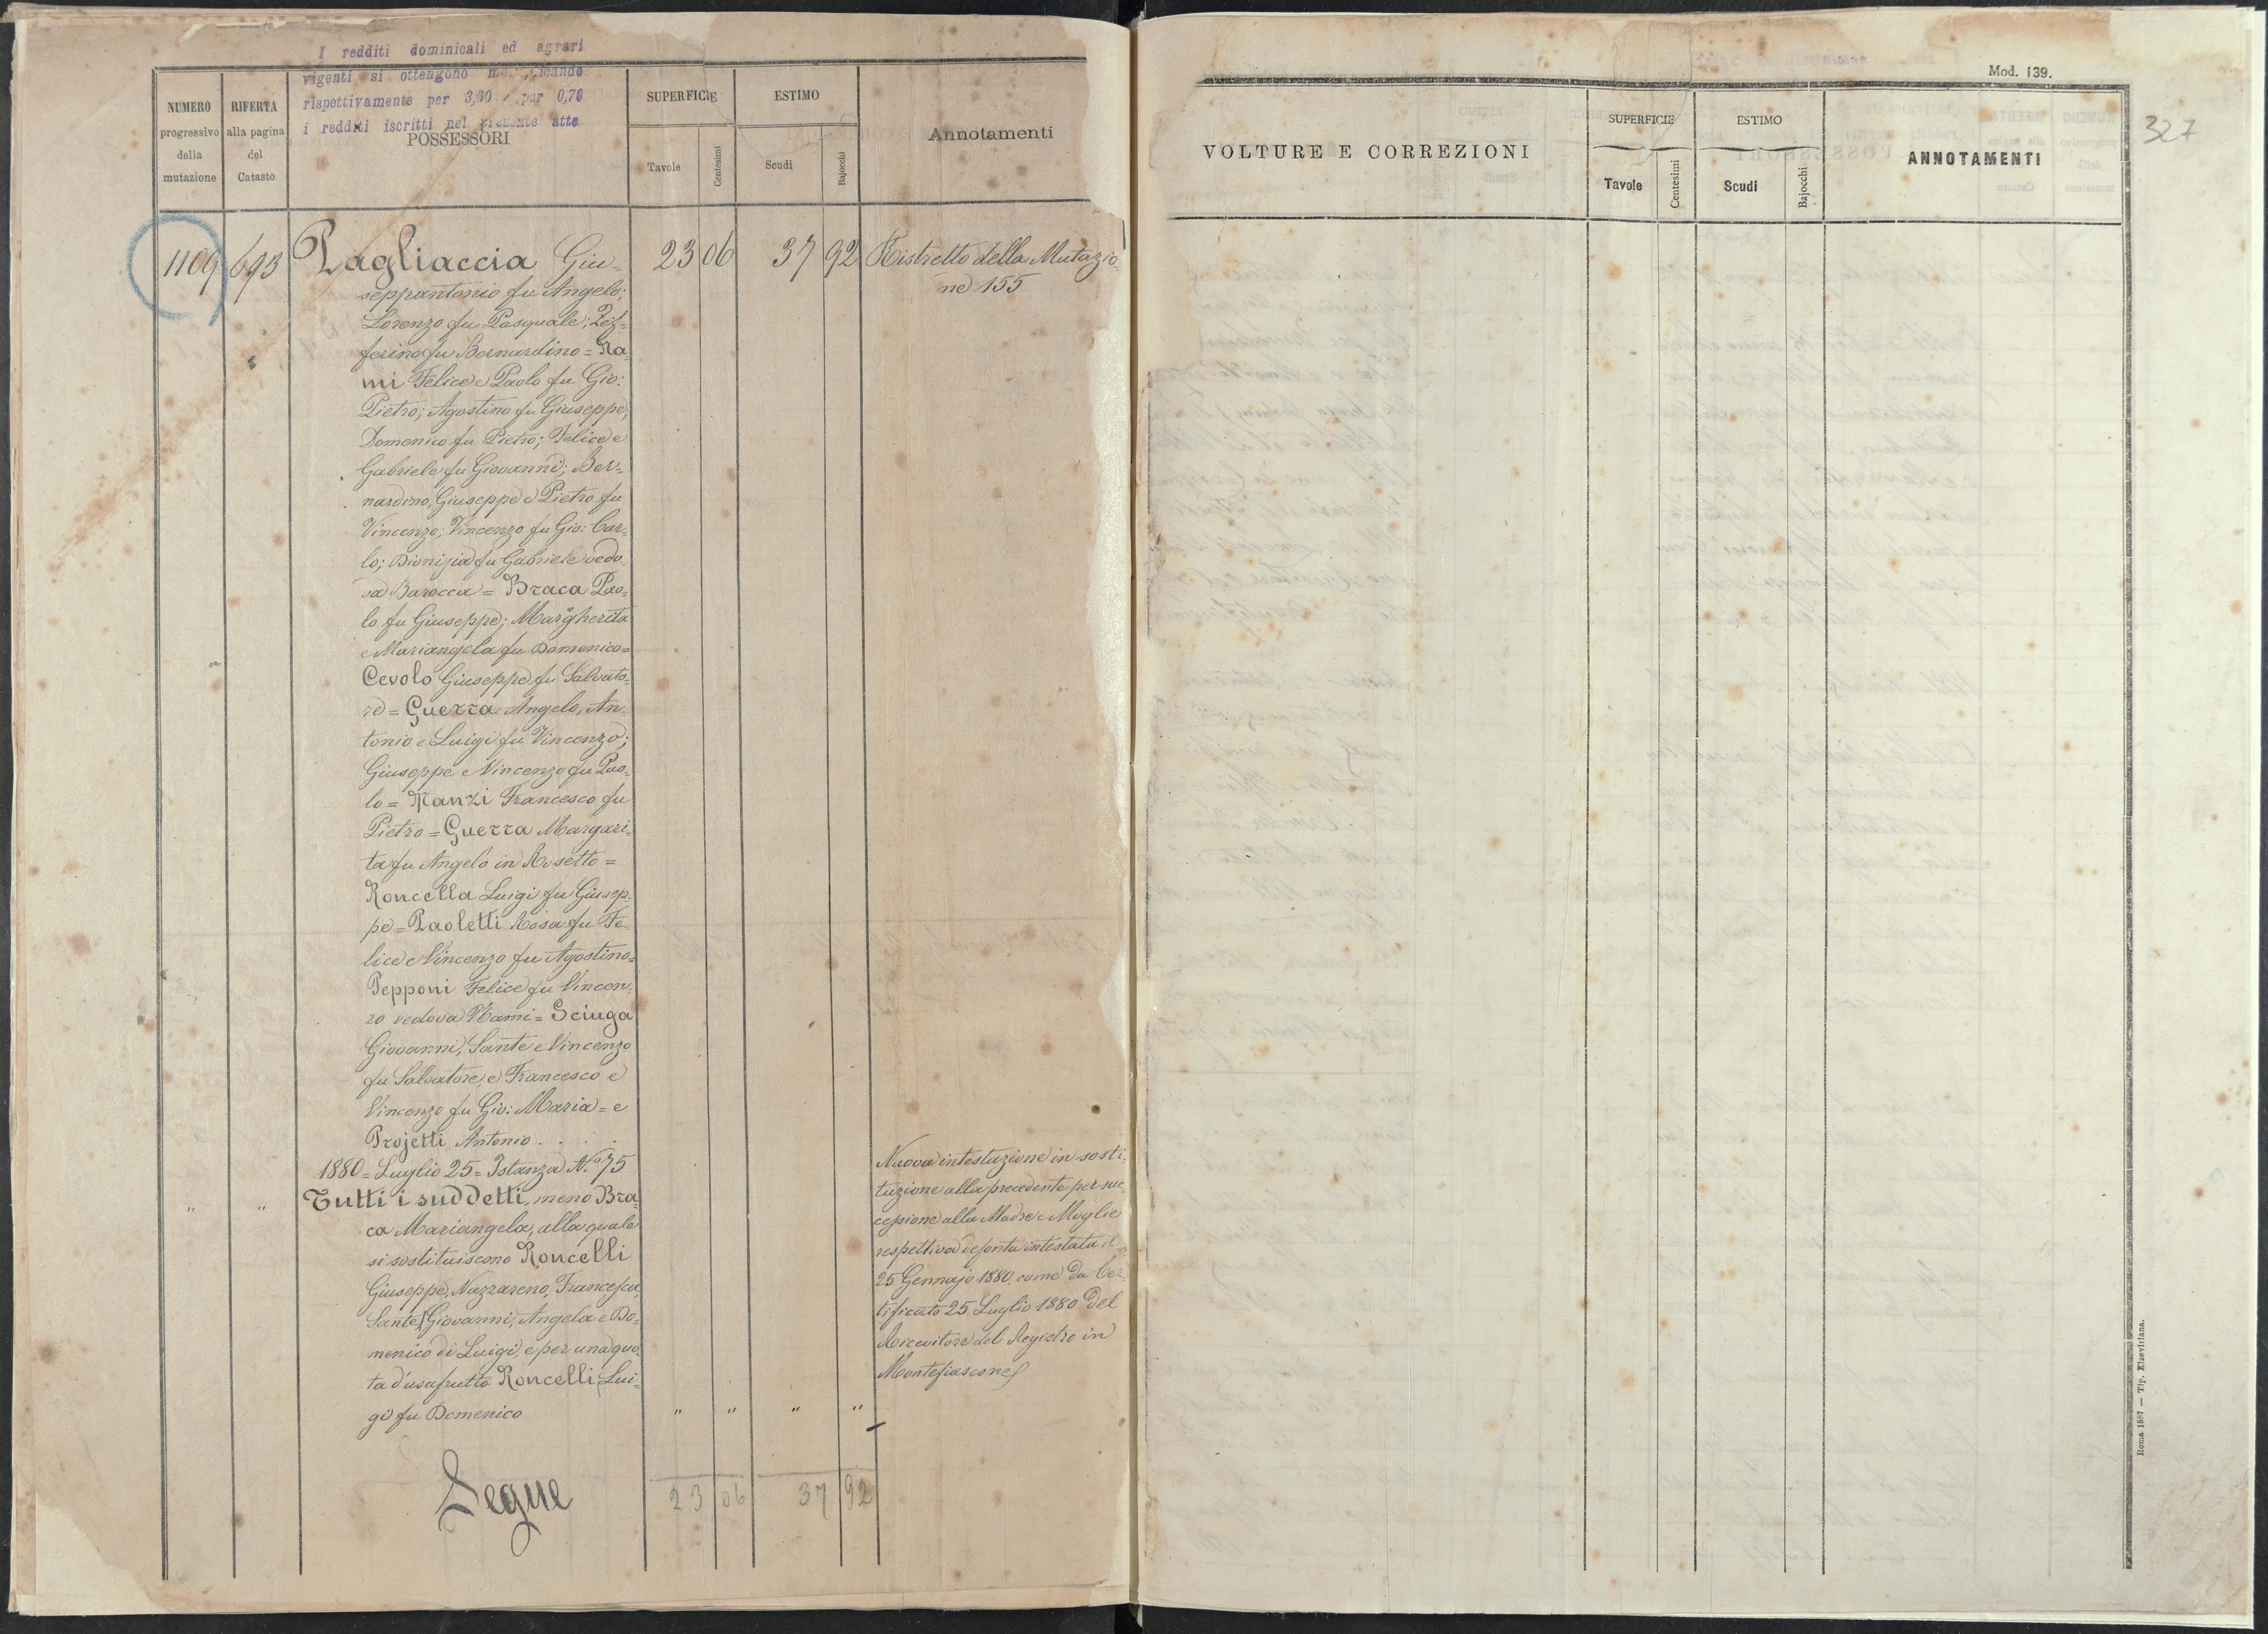 I redditi dominicali ed agrari
vigenti si ottengono
rispettivamente per 3,60 per 0,70
i redditi iscritti nel presente atto
NUMERO
progressivo
della
mutazione
RIFERTA
alla pagina
del
Catasto
POSSESSORI
SUPERFICIE
Tavole
Centesimi
ESTIMO
Scudi
Bajocchi
Annotamenti
1109 693 Pagliaccia Giu- 23 06 37 92 Ristretto della Mutazio-
ne 155
seppantonio fu Angelo;
Lorenzo fu Pasquale; Zef=
ferino fu Bernardino = Na
mi Felice e Paolo fu Gio:
Pietro; Agostino fu Giuseppe;
Domenico fu Pietro; Felice e
Gabriele fu Giovanni; Ber=
nardino, Giuseppe e Pietro fu
Vincenzo; Vincenzo fu Gio: Car=
lo; Dionisia fu Gabriele vedo=
va Barocca = Braca Pao=
lo fu Giuseppe; Margherita
e Mariangela fu Domenico=
Cevolo Giuseppe fu Salvato=
re = Guerra Angelo, An=
tonio e Luigi fu Vincenzo;
Giuseppe e Vincenzo fu Pao=
lo = Manzi Francesco fu
Pietro = Guerra Margari=
ta fu Angelo in Rosetto =
Roncella Luigi fu Giusep=
pe = Paoletti Rosa fu Fe=
lice e Vincenzo fu Agostino=
Pepponi Felice fu Vincen=
zo vedova Nami = Sciuga
Giovanni, Sante e Vincenzo
fu Salvatore, e Francesco e
Vincenzo fu Gio: Maria = e
Projetti Antonio . . . .
1880 = Luglio 25 = Istanza N.° 75
" " Tutti i suddetti, meno Bra
ca Mariangela, alla quale
si sostituiscono Roncelli
Giuseppe, Nazzareno, Francesca,
Sante, Giovanni, Angela e Do=
menico di Luigi, e per una quo
ta d'usufrutto Roncelli Lui=
gi fu Domenico " " " "
Nuova intestazione in sosti=
tuzione alla precedente per suc=
cessione alla Madre e Moglie
respettiva defonta intestata il
25 Gennajo 1880, come da Cer=
tificato 25 Luglio 1880 del
Ricevitore del Registro in
Montefiascone
Segue 23 06 37 92
Mod. 139.
327
VOLTURE E CORREZIONI
SUPERFICIE
Tavole
Centesimi
ESTIMO
Scudi
Bajocchi
ANNOTAMENTI
Roma 1887 — Tip. Elzeviriana.